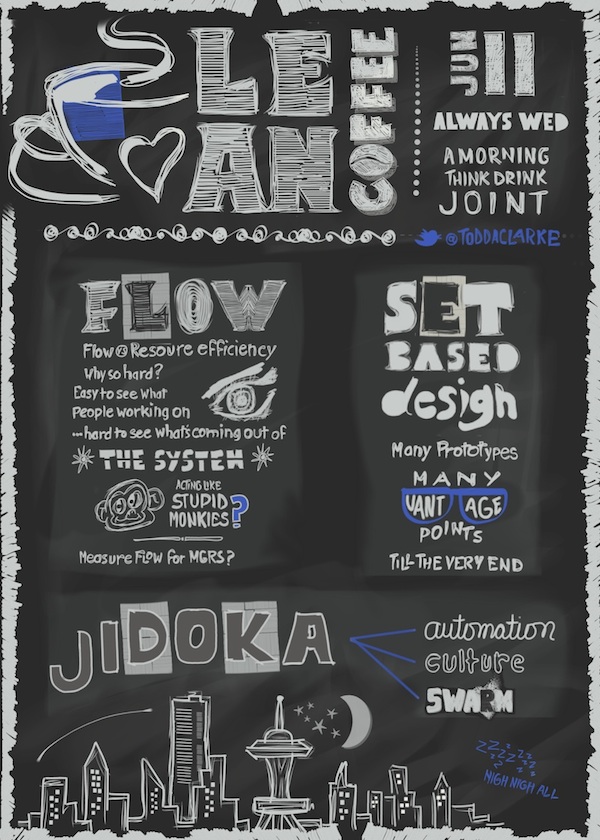 LEAN
COFFEE
JUN 11
ALWAYS WED
A MORNING
THINK DRINK
JOINT
@TODDACLARKE
FLOW
Flow Resoure efficiency
Why so hard?
Easy to see what
People working on
...hard to see what's coming out of
THE SYSTEM
ACTING LIKE
STUPID
MONKIES?
Measure Flow for MGRS?
SET
BASED
design
Many Prototypes
MANY
VANTAGE
POINTS
TILL THE VERY END
JIDOKA
automation
culture
SWARM
ZZZZZZZ
NIGH NIGH ALL